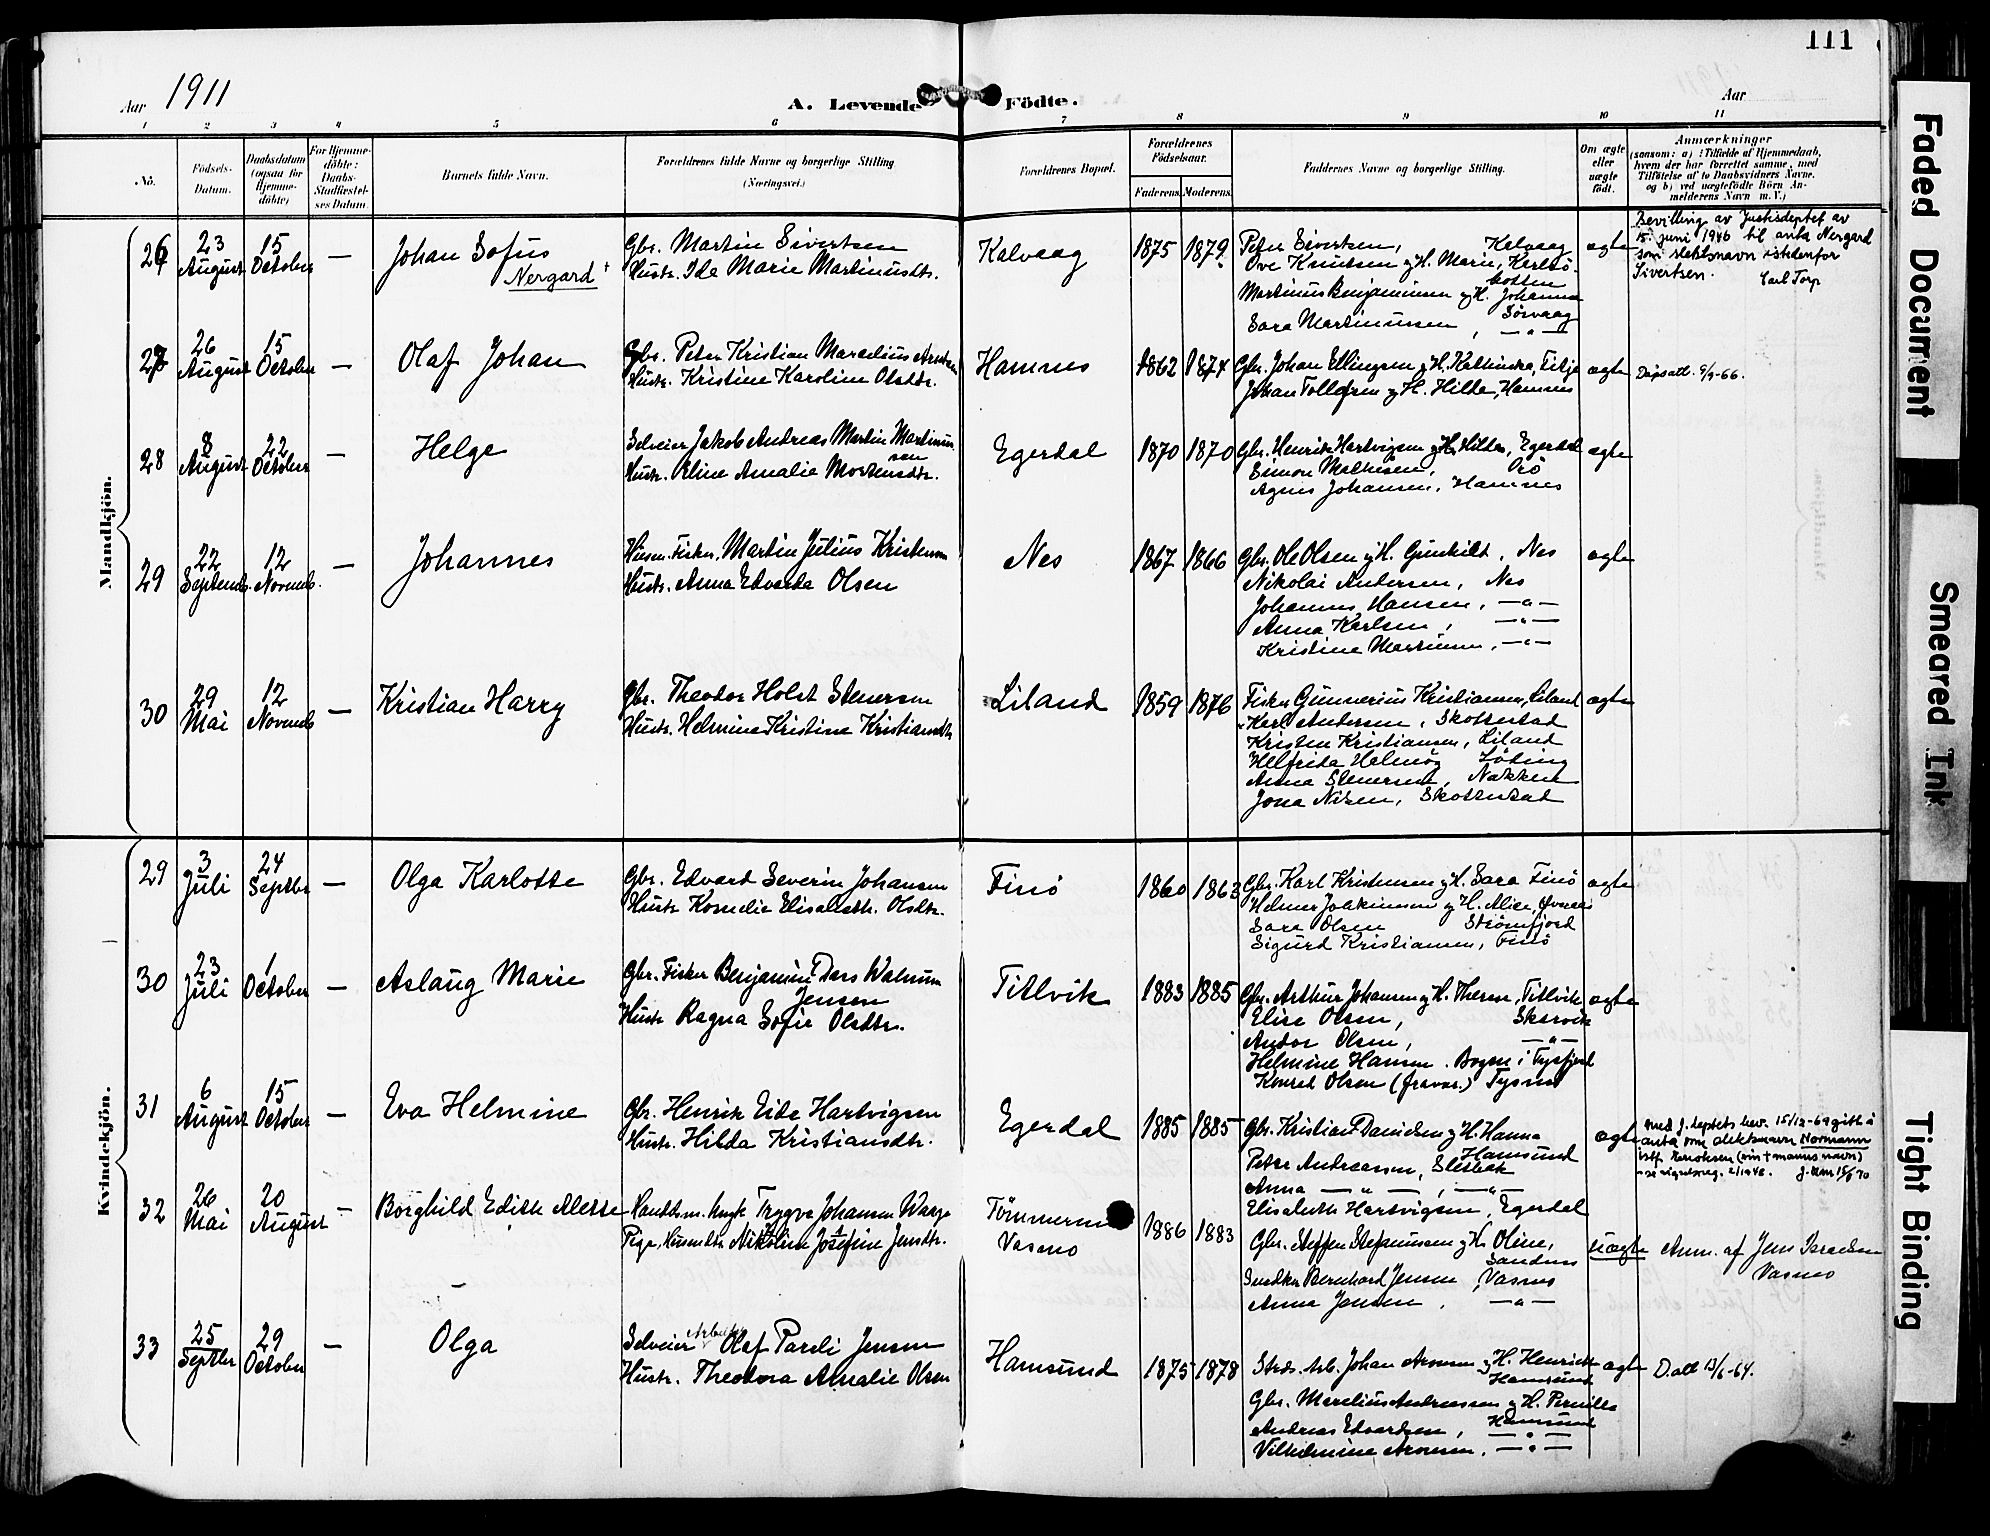 111
Aar 1911
A. Levende Födte.
Aar
1 2 3 4 5 6 7 8 9 10 11
Nö.
Födsels-Datum.
Daabsdatum (ogsaa for Hjemme-döbte)
For Hjemme-döbte: Daabs-Stadfæstelses Datum.
Barnets fulde Navn.
Forældrenes fulde Navne og borgerlige Stilling (Næringsvei.)
Forældrenes Bopæl.
Forældrenes Födselsaar.
Faderens. Moderens.
Faddernes Navne og borgerlige Stilling.
Om ægte eller uægte födt.
Anmærkninger
(saasom: a) i Tilfælde af Hjemmedaab,
hvem der har forrettet samme, med
Tilföielse af to Daabsvidners Navne.
og b) ved uægtefödte Börn An-
melderens Navn m. V.)
Mandkjön.
26 23 August 15 October — Johan Sofus Nergard
Gbr. Martin Sivertsen
Hustr. Ida Marie Martinusdtr.
Kalvaag 1875 1879
Peter Sivertsen, Kalvaag
Ove Knutsen og H. Marie, Karlsö-
botten
Martinus Benjaminsen og H. Johanna
Sörvaag
Sara Martinussen, — " —
ægte
Bevilling av Justisdeptet av
15. juni 1946 til anta Nergard
som slektsnavn istedenfor
Sivertsen. Carl Torp
27 26 August 15 October — Olaf Johan
Gbr. Peter Kristian Marselius
Hustr. Kristine Karoline Olsdtr.
Hamnes 1862 1874
Gbr. Johan Ellingsen og H. Kathinka,
Johan Tollefsen og H. Hilda, Hamnes
ægte
Dåpsatt. 9/9-66.
28 8 August 22 October — Helge
Selveier Jakob Andreas Martin Martinus
sen
Hustr. Eline Amalie Mortensdtr.
Egerdal 1870 1870
Gbr. Henrik Hartvigsen og H. Hilda, Egerdal
Simon Mathisen,
Agnes Johansen, Hamnes
ægte
29 22 Septemb. 12 Novemb. — Johannes
Husm. Fisker, Martin Julius Kristensen
Hustr. Anna Edvarda Olsen
Nes 1867 1866
Gbr. Ole Olsen og H. Gunhild, Nes
Nikolai Andersen, Nes
Johannes Hansen, — " —
Anna Karlsen, — " —
Kristine Martinsen, — " —
ægte
30 29 Mai 12 Novemb — Kristian Harry
Gbr. Theodor Holst Stenersen
Hustr. Helmine Kristine Kristiansdtr
Liland 1859 1876
Fisker Gunnerius Kristiansen, Liland
" Karl Andersen, Skottestad
Kristen Kristiansen, Liland
Helfrida Helmög Löding
Anna Stenersen, Nakken
Jona Nilsen, Skottestad
ægte
Kvindekjön.
29 3 Juli 24 Septbr — Olga Karlotte
Gbr. Edvard Severin Johansen
Hustr Kornelie Elisabeth. Olsdtr.
Finö 1860 1863
Gbr. Karl Kristensen og H. Sara Finö
Helmer Joakimsen og H. Alice,
Sara Olsen Strömfjord
Sigurd Kristiansen, Finö
ægte
30 23 Juli 1 October — Aslaug Marie
Gbr. Fisker Benjamin Dars Walnum
Jensen
Hustr Ragna Sofie Olsdtr.
Titlvik 1883 1885
Gbr. Arthur Johansen og H. Therese, Titlvik
Elise Olsen, Skarvik
Andor Olsen, — " —
Helmine Hansen. Bogen i Tysfjord
Konrad Olsen (fravær.) Tysnes
ægte
31 6 August 15 October — Eva Helmine
Gbr. Henrik Eide Hartvigsen
Hustr. Hilda Kristiansdtr.
Egerdal 1885 1885
Gbr. Kristian Danielsen og H. Hanna
Hamsund
Petra Andreassen, Slesbak
Anna — " —, — " —
Elisabeth Hartvigsen, Egerdal
ægte
med J. deptets bev. 15/12-69 gitt å
anta som slektsnavn Normann
istf. Eriksen (sin + manns navn)
32 26 Mai 20 August — Borghild Edith Alette
Handelsm. Trygve Johannes Waage
Pige, Husmdtr. Nikoline Josefine Jensdtr.
Tömmernes
Vasmo
1886 1883
Gbr. Steffen Stefanussen og H. Oline,
Sandnes
Smedker Bernhard Jensen, Vasmo
Anna Jensen, — " —
uægte
Anm. af Jens
Vasmo
33 25 Septbr 29 October — Olga
Selveier Arbeider Olaf Pareli Jensen
Hustr. Theodora Amalie Olsen
Hamsund 1875 1878
Stads. Arb. Johan Aronsen og H. Henrikke
Hamsund
Gbr. Marelius Andreassen og H. Pernilla
Hamsund
Andreas Edvardsen, — " —
Vilhelmine Aronsen, — " —
ægte
D.att 13/6-64.
Faded Document
Smeared Ink
Tight Binding